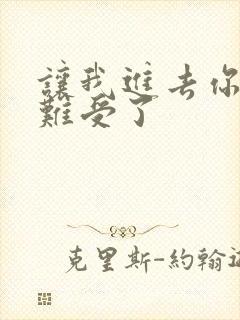 讓我進去你
難受了
克里斯-約翰遜